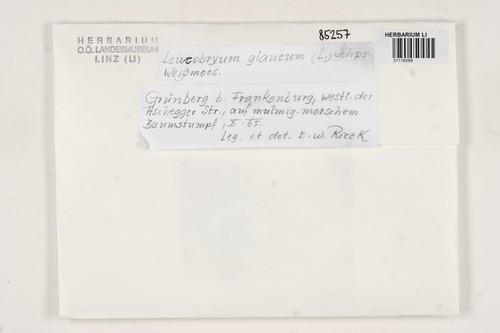 HERBARIUM
O.Ö. LANDESMUSEUM
LINZ (LI)
85257
HERBARIUM LI
01116089
Leucobryum glaucum (L.) Schpr.
Weißmoos.
Grünberg b. Frankenburg, westl. der
Aschegger Str., auf mulmig-morschem
Baumstumpf, X. 65.
Leg. et det. E. W. Ricek